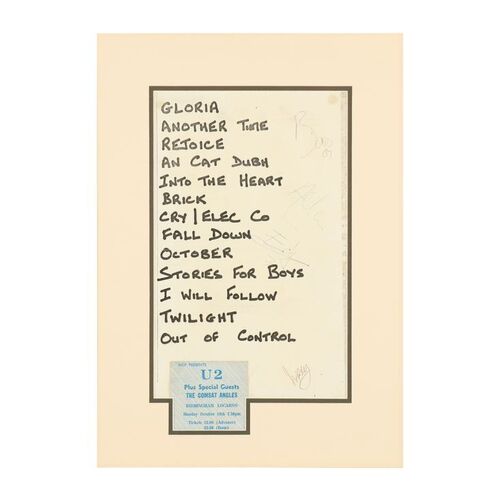 GLORIA
ANOTHER TIME
REJOICE
AN CAT DUBH
INTO THE HEART
BRICK
CRY | ELEC CO
FALL DOWN
OCTOBER
STORIES FOR BOYS
I WILL FOLLOW
TWILIGHT
OUT OF CONTROL
PRESENTS
U2
Plus Special Guests
THE COMSAT ANGLES
BIRMINGHAM LOCARNO
Sunday October 7.30pm
Tickets (Advance)
(Door)